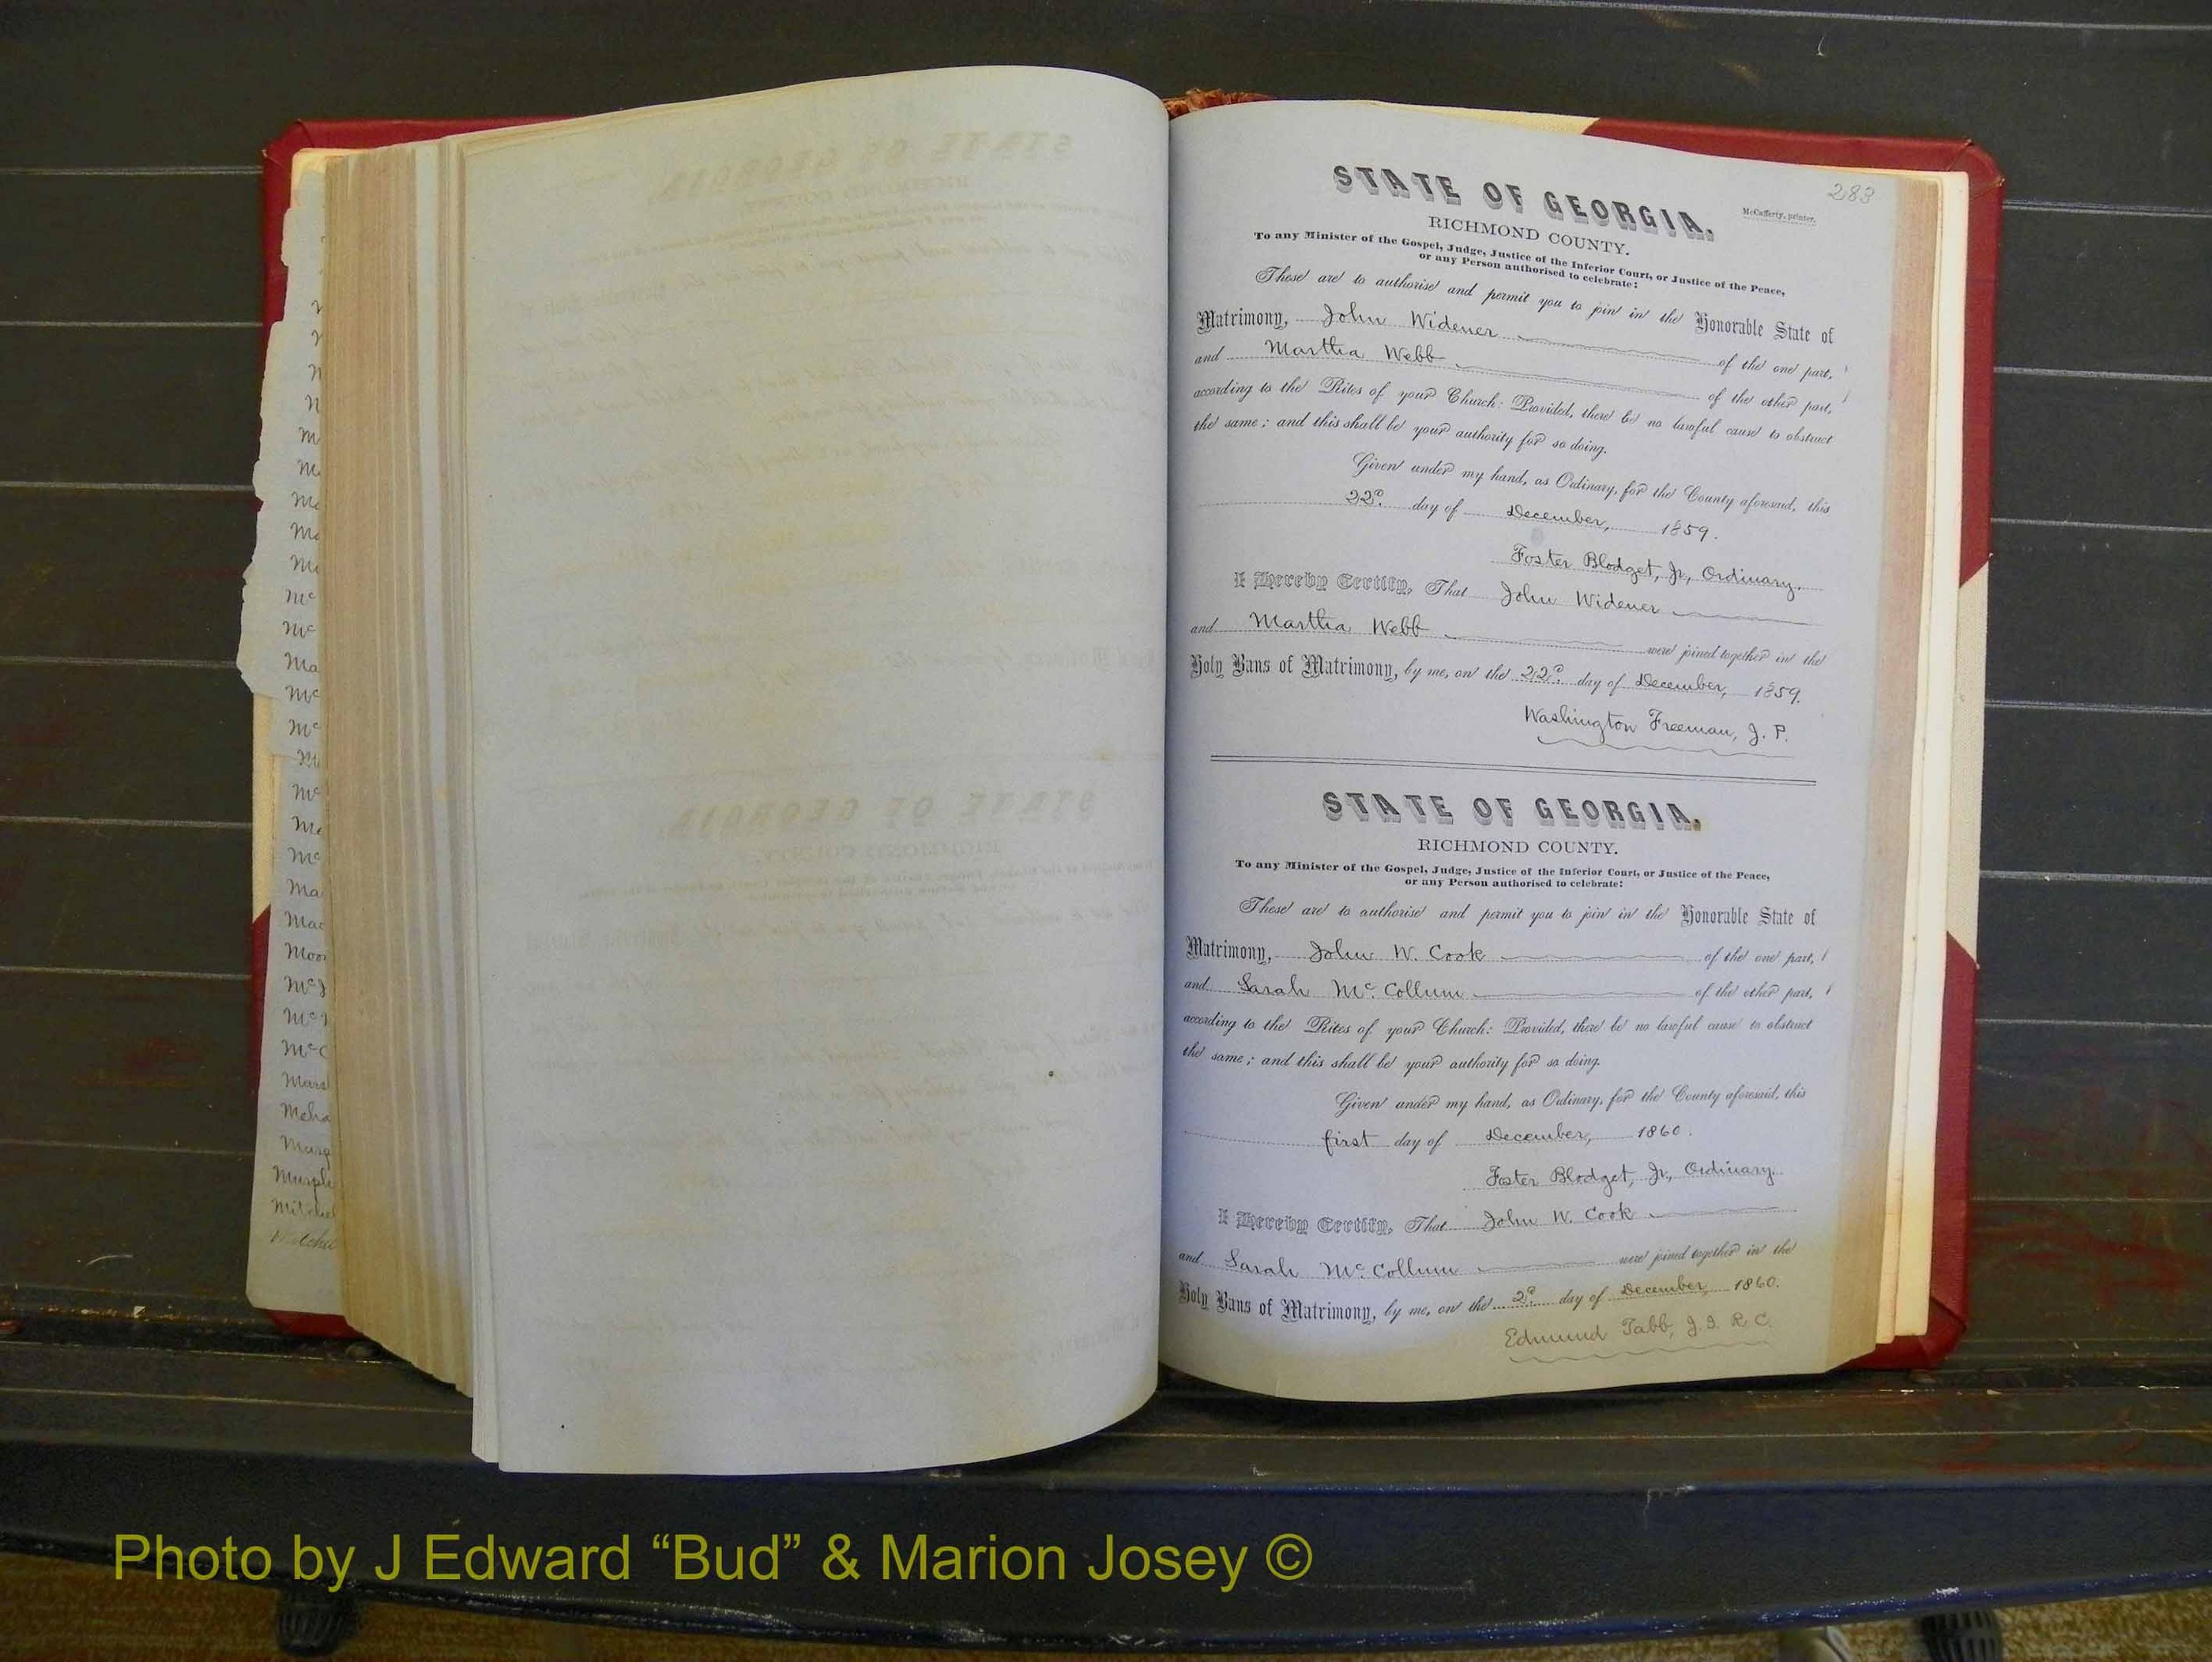 283
STATE OF GEORGIA.
McCafferty, printer.
RICHMOND COUNTY.
To any Minister of the Gospel, Judge, Justice of the Inferior Court, or Justice of the Peace,
or any Person authorised to celebrate:
These are to authorise and permit you to join in the Honorable State of
Matrimony, John Widener of the one part,
and Martha Webb of the other part,
according to the Rites of your Church: Provided, there be no lawful cause to obstruct
the same; and this shall be your authority for so doing.
Given under my hand, as Ordinary, for the County aforesaid, this
22d. day of December, 1859.
Foster Blodget, Jr, Ordinary.
I Hereby Certify, That John Widener
and Martha Webb were joined together in the
Holy Bans of Matrimony, by me, on the 22d. day of December, 1859.
Washington Freeman, J. P.
STATE OF GEORGIA.
RICHMOND COUNTY.
To any Minister of the Gospel, Judge, Justice of the Inferior Court, or Justice of the Peace,
or any Person authorised to celebrate:
These are to authorise and permit you to join in the Honorable State of
Matrimony, John W. Cook of the one part,
and Sarah Mc.Collum of the other part,
according to the Rites of your Church: Provided, there be no lawful cause to obstruct
the same; and this shall be your authority for so doing.
Given under my hand, as Ordinary, for the County aforesaid, this
first day of December, 1860.
Foster Blodget, Jr., Ordinary.
I Hereby Certify, That John W. Cook
and Sarah Mc.Collum were joined together in the
Holy Bans of Matrimony, by me, on the 2d. day of December, 1860.
Edmund Tabb, J. I. R. C.
Photo by J Edward “Bud” & Marion Josey ©